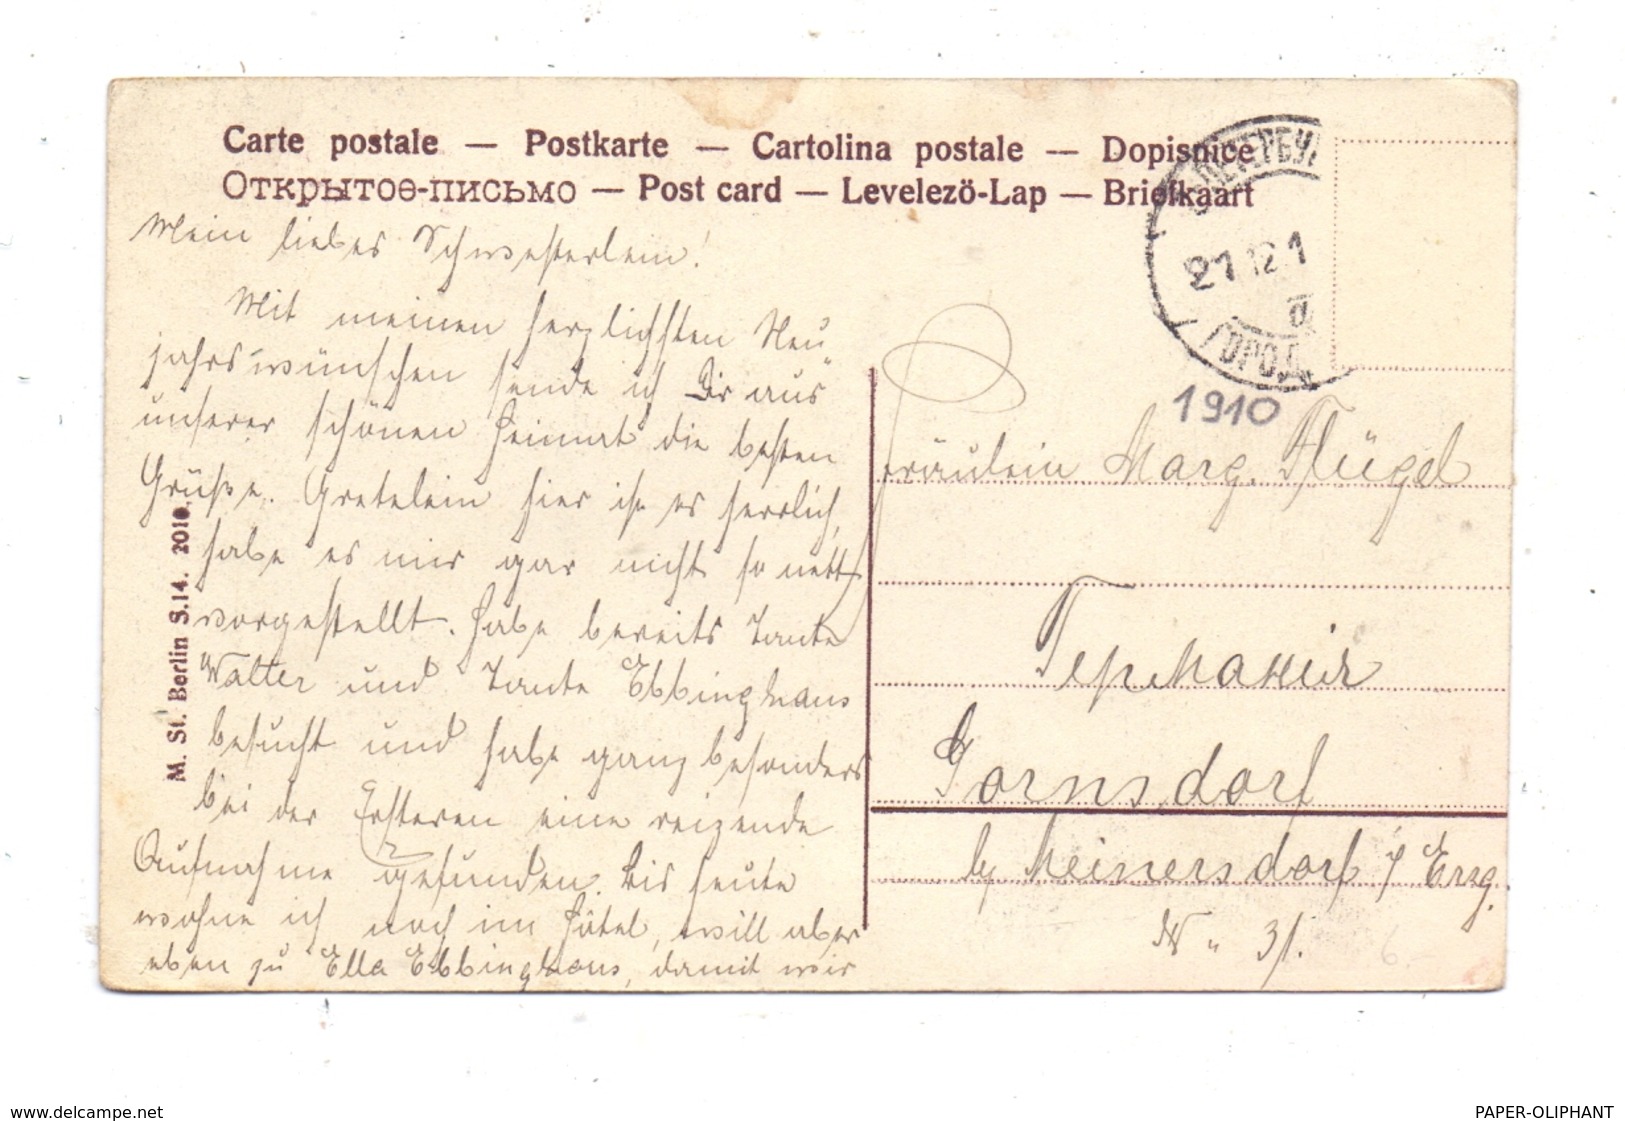 Carte postale — Postkarte — Cartolina postale — Dopisnice
Открытое-письмо — Post card — Levelező-Lap — Briefkaart
Mein liebes Schwesterlein!
Mit meinen herzlichsten Neu
jahrswünschen sende ich Dir aus
unserer schönen Heimat die besten
Grüße. Gretelein hier ist es herrlich,
habe es mir gar nicht so nett
vorgestellt. Habe bereits Tante
Walter und Tante Ebbinghaus
besucht und habe ganz besonders
bei der Ersteren eine reizende
Aufnahme gefunden. Bis heute
wohne ich noch im Hôtel, will aber
eben zu Ella Ebbinghaus, damit wir
M. St. Berlin S.14. 2010.
21 12 1
ГОРОД
1910
Fräulein Marg. Flügel
Германія
Gornsdorf
b/ Meinersdorf i/ Erzg.
N" 31.
6.-
www.delcampe.net
PAPER-OLIPHANT